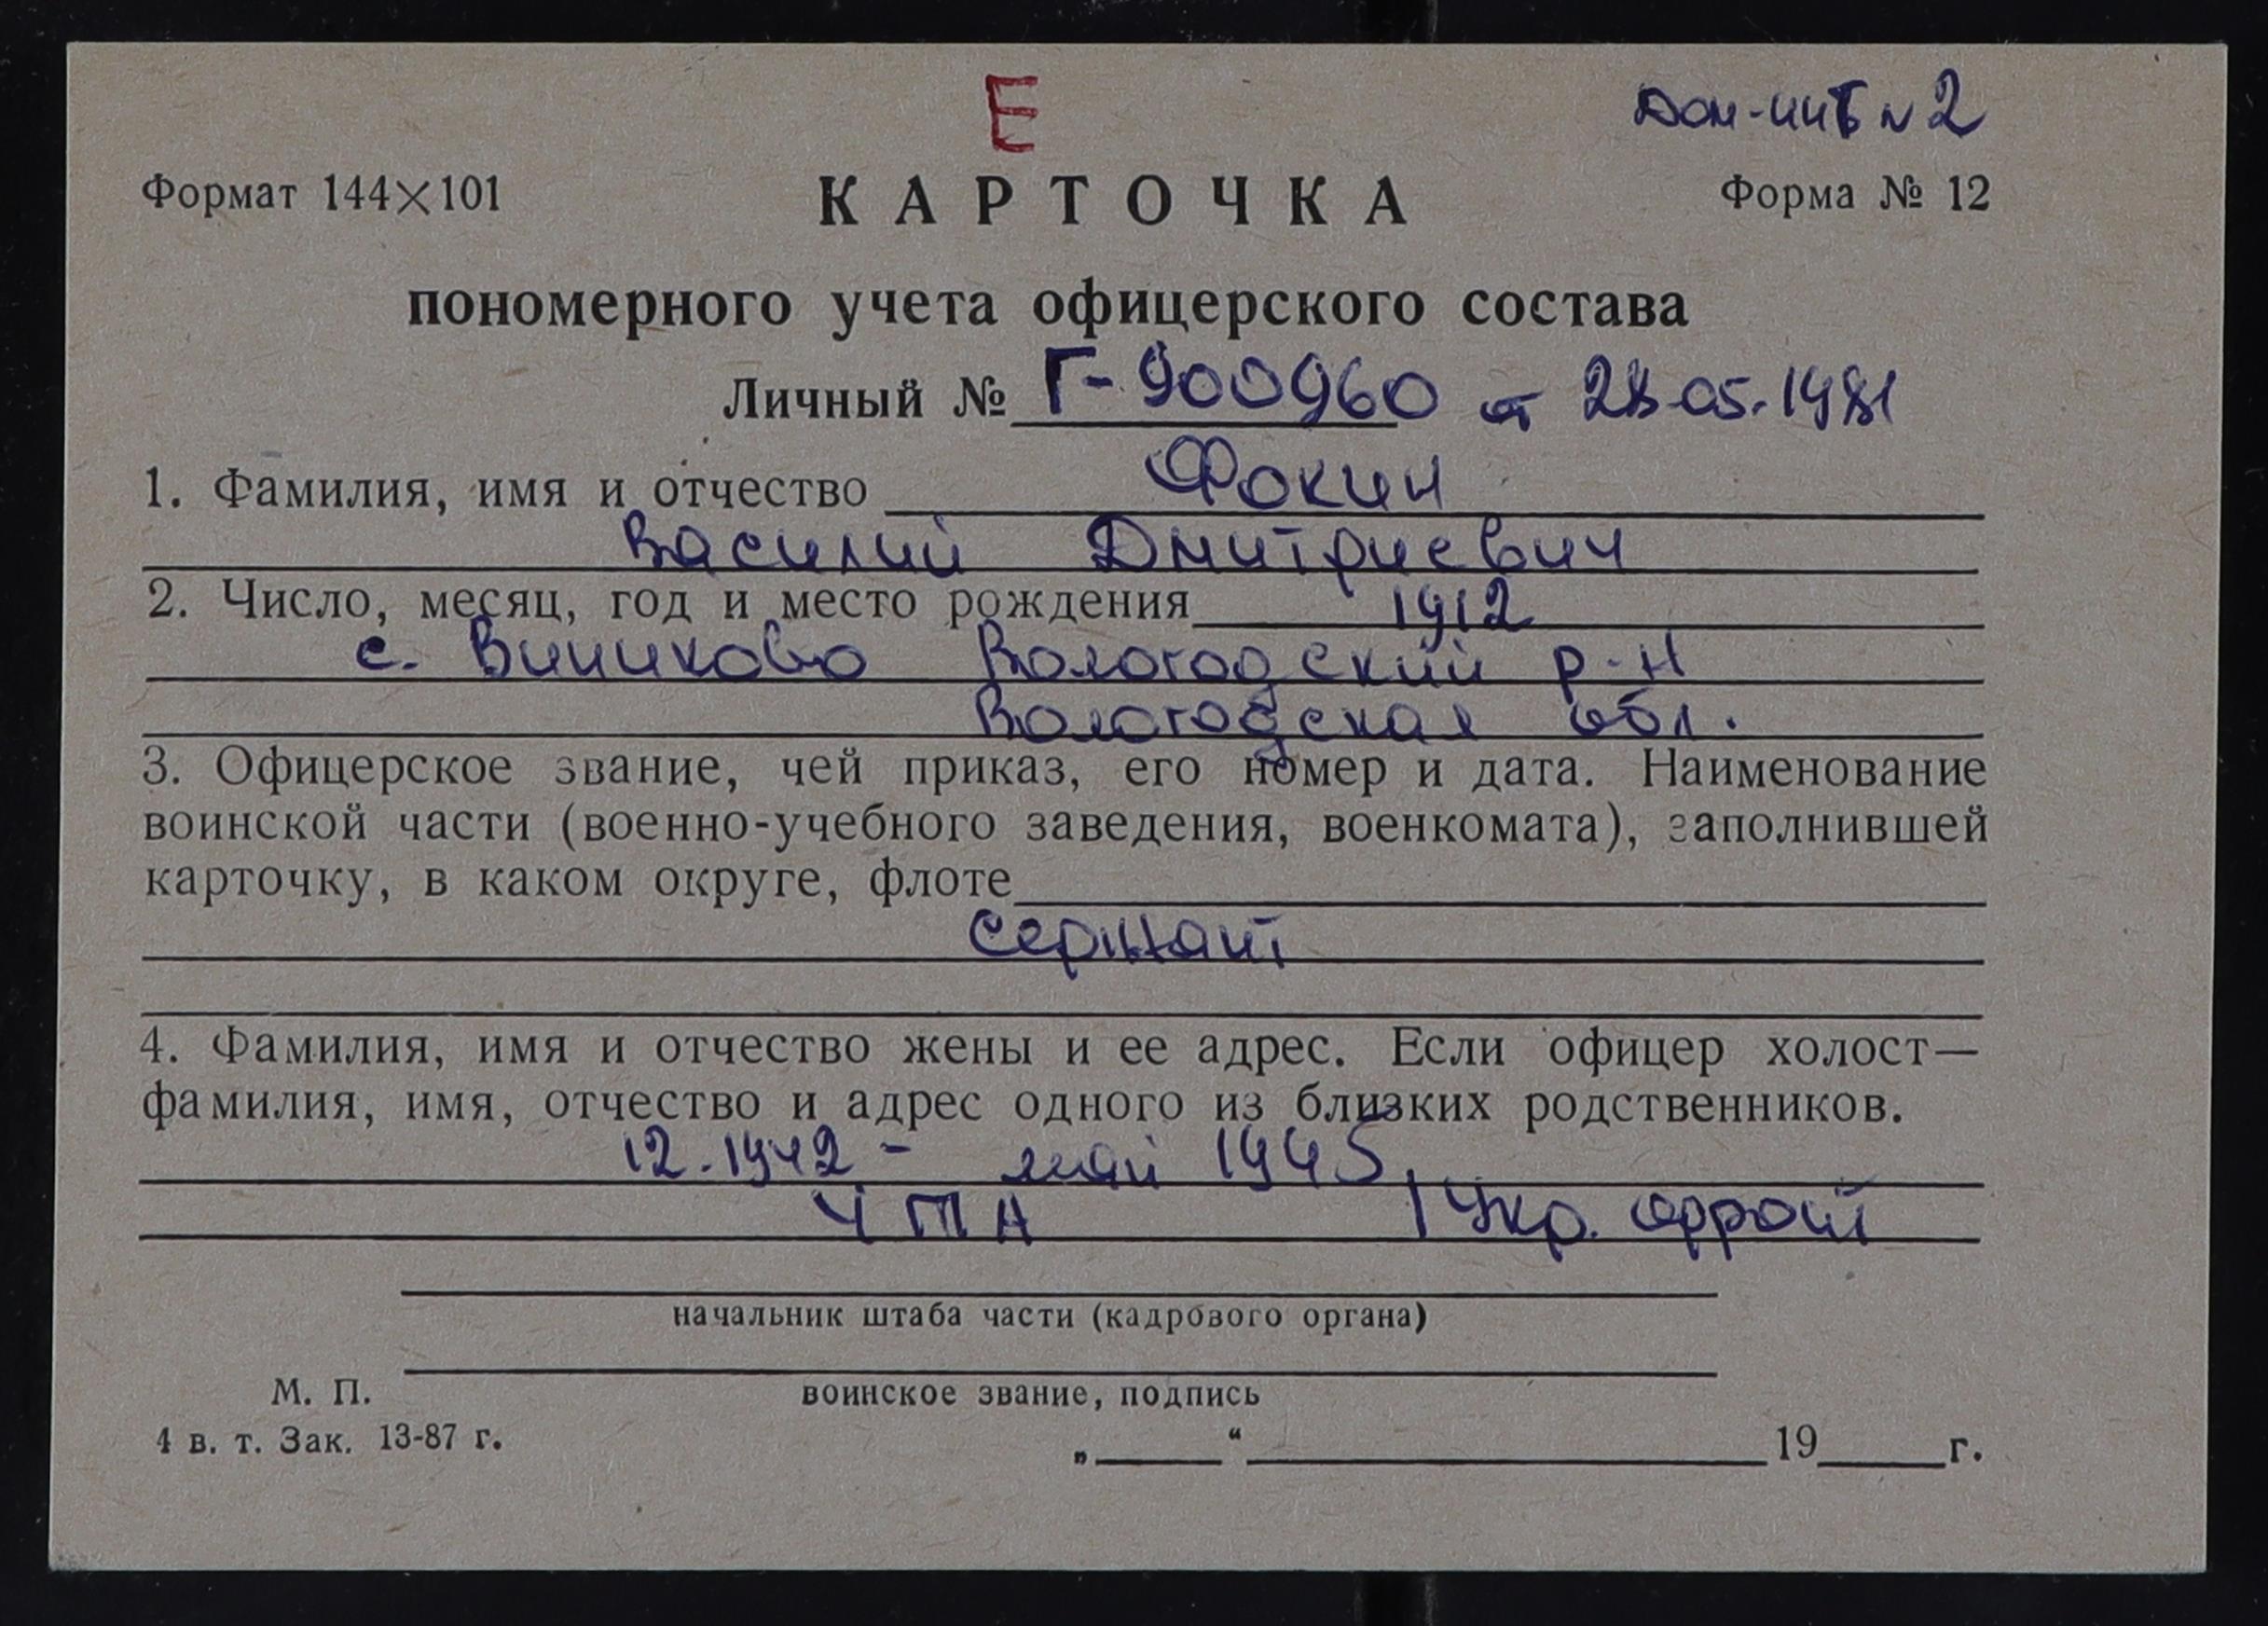 Е
Дом-инв № 2
Формат 144×101
КАРТОЧКА
Форма № 12
пономерного учета офицерского состава
Личный № Г-900960 от 28.05.1981
1. Фамилия, имя и отчество Фокин
Василий Дмитриевич
2. Число, месяц, год и место рождения 1912
с. Виниково Вологодский р-н
Вологодская обл.
3. Офицерское звание, чей приказ, его номер и дата. Наименование
воинской части (военно-учебного заведения, военкомата), заполнившей
карточку, в каком округе, флоте
сержант
4. Фамилия, имя и отчество жены и ее адрес. Если офицер холост—
фамилия, имя, отчество и адрес одного из близких родственников.
12.1942 - май 1945
4 ТА 1 Укр. фронт
начальник штаба части (кадрового органа)
М. П.
воинское звание, подпись
4 в. т. Зак. 13-87 г.
„ “ 19 г.